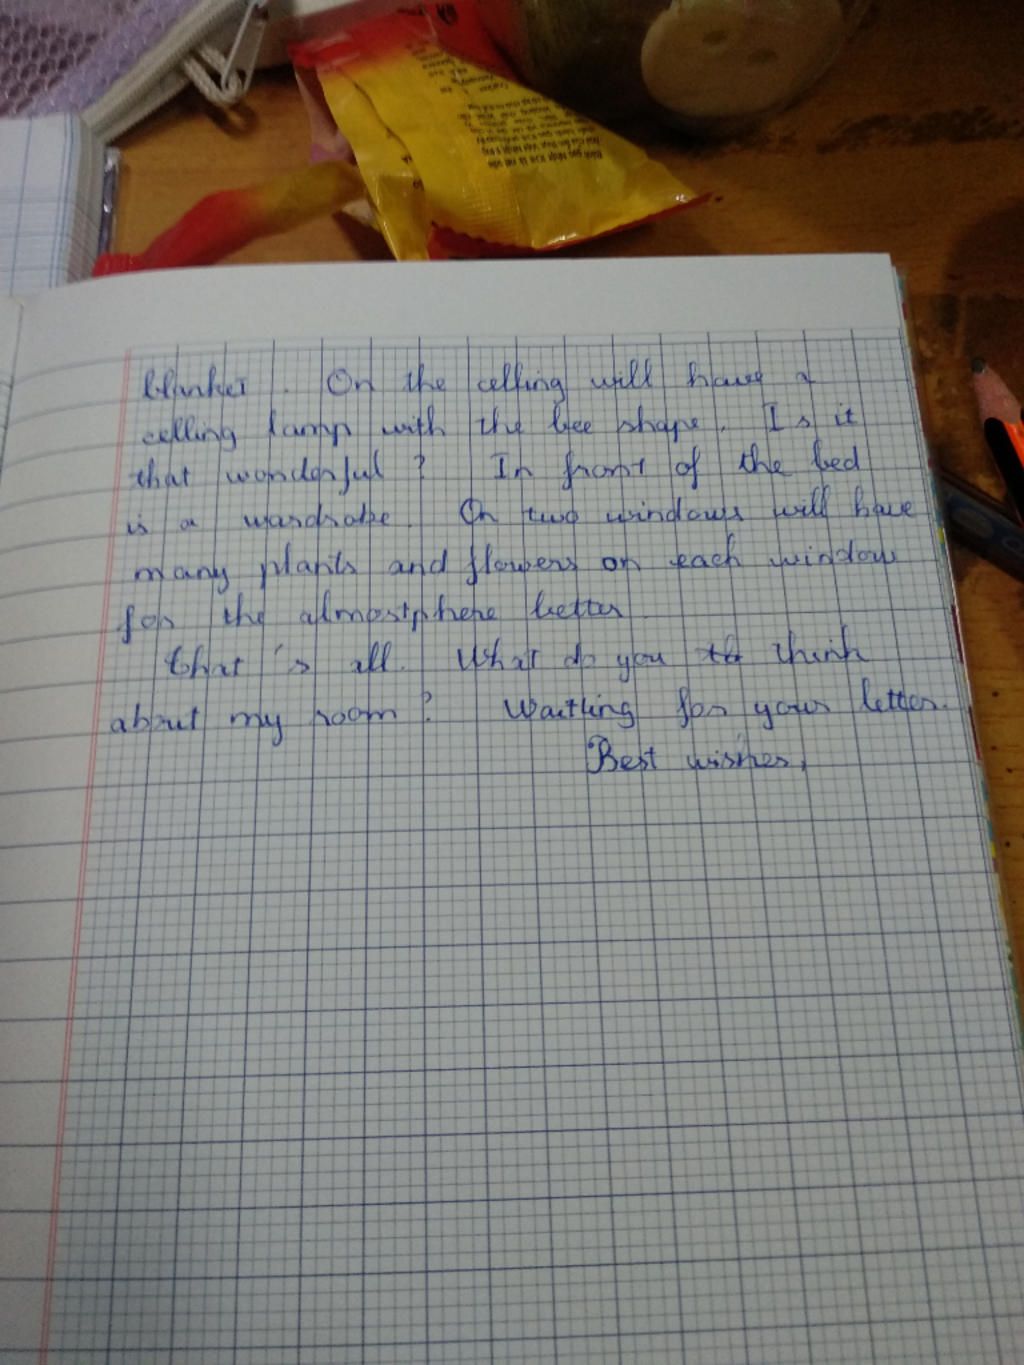 blanket. On the celling will have a
celling lamp with the bee shape. Is it
that wonderful? In front of the bed
is a wardrobe. On two windows will have
many plants and flowers on each window
for the almostphere better
that's all. What do you th think
about my room? Waitting for your letter.
Best wishes,